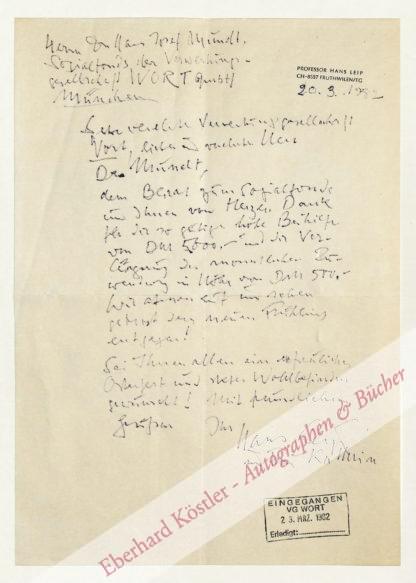 Herrn Dr. Hans Josef Mundt,
Sozialfonds der Verwertungs-
gesellschaft WORT GmbH
München
PROFESSOR HANS LEIP
CH-8557 FRUTHWILEN/TG
20. 3. 1982
Sehr verehrte Verwertungsgesellschaft
Wort, lieber und verehrter Herr
Dr. Mundt,
dem Beirat zum Sozialfonds
und Ihnen von Herzen Dank
für die so gütige hohe Beihilfe
von DM 5000.- und die Ver-
längerung der monatlichen Zu-
wendung in Höhe von DM 500.-
Wir atmen auf und sehen
getrost dem neuen Frühling
entgegen!
Sei Ihnen allen eine erfreuliche
Osterzeit und stetes Wohlbefinden
gewünscht! Mit freundlichen
Grüßen Ihr
Hans
Kathrin
EINGEGANGEN
VG WORT
2 3. MRZ. 1982
Erledigt:
Eberhard Köstler - Autographen & Bücher